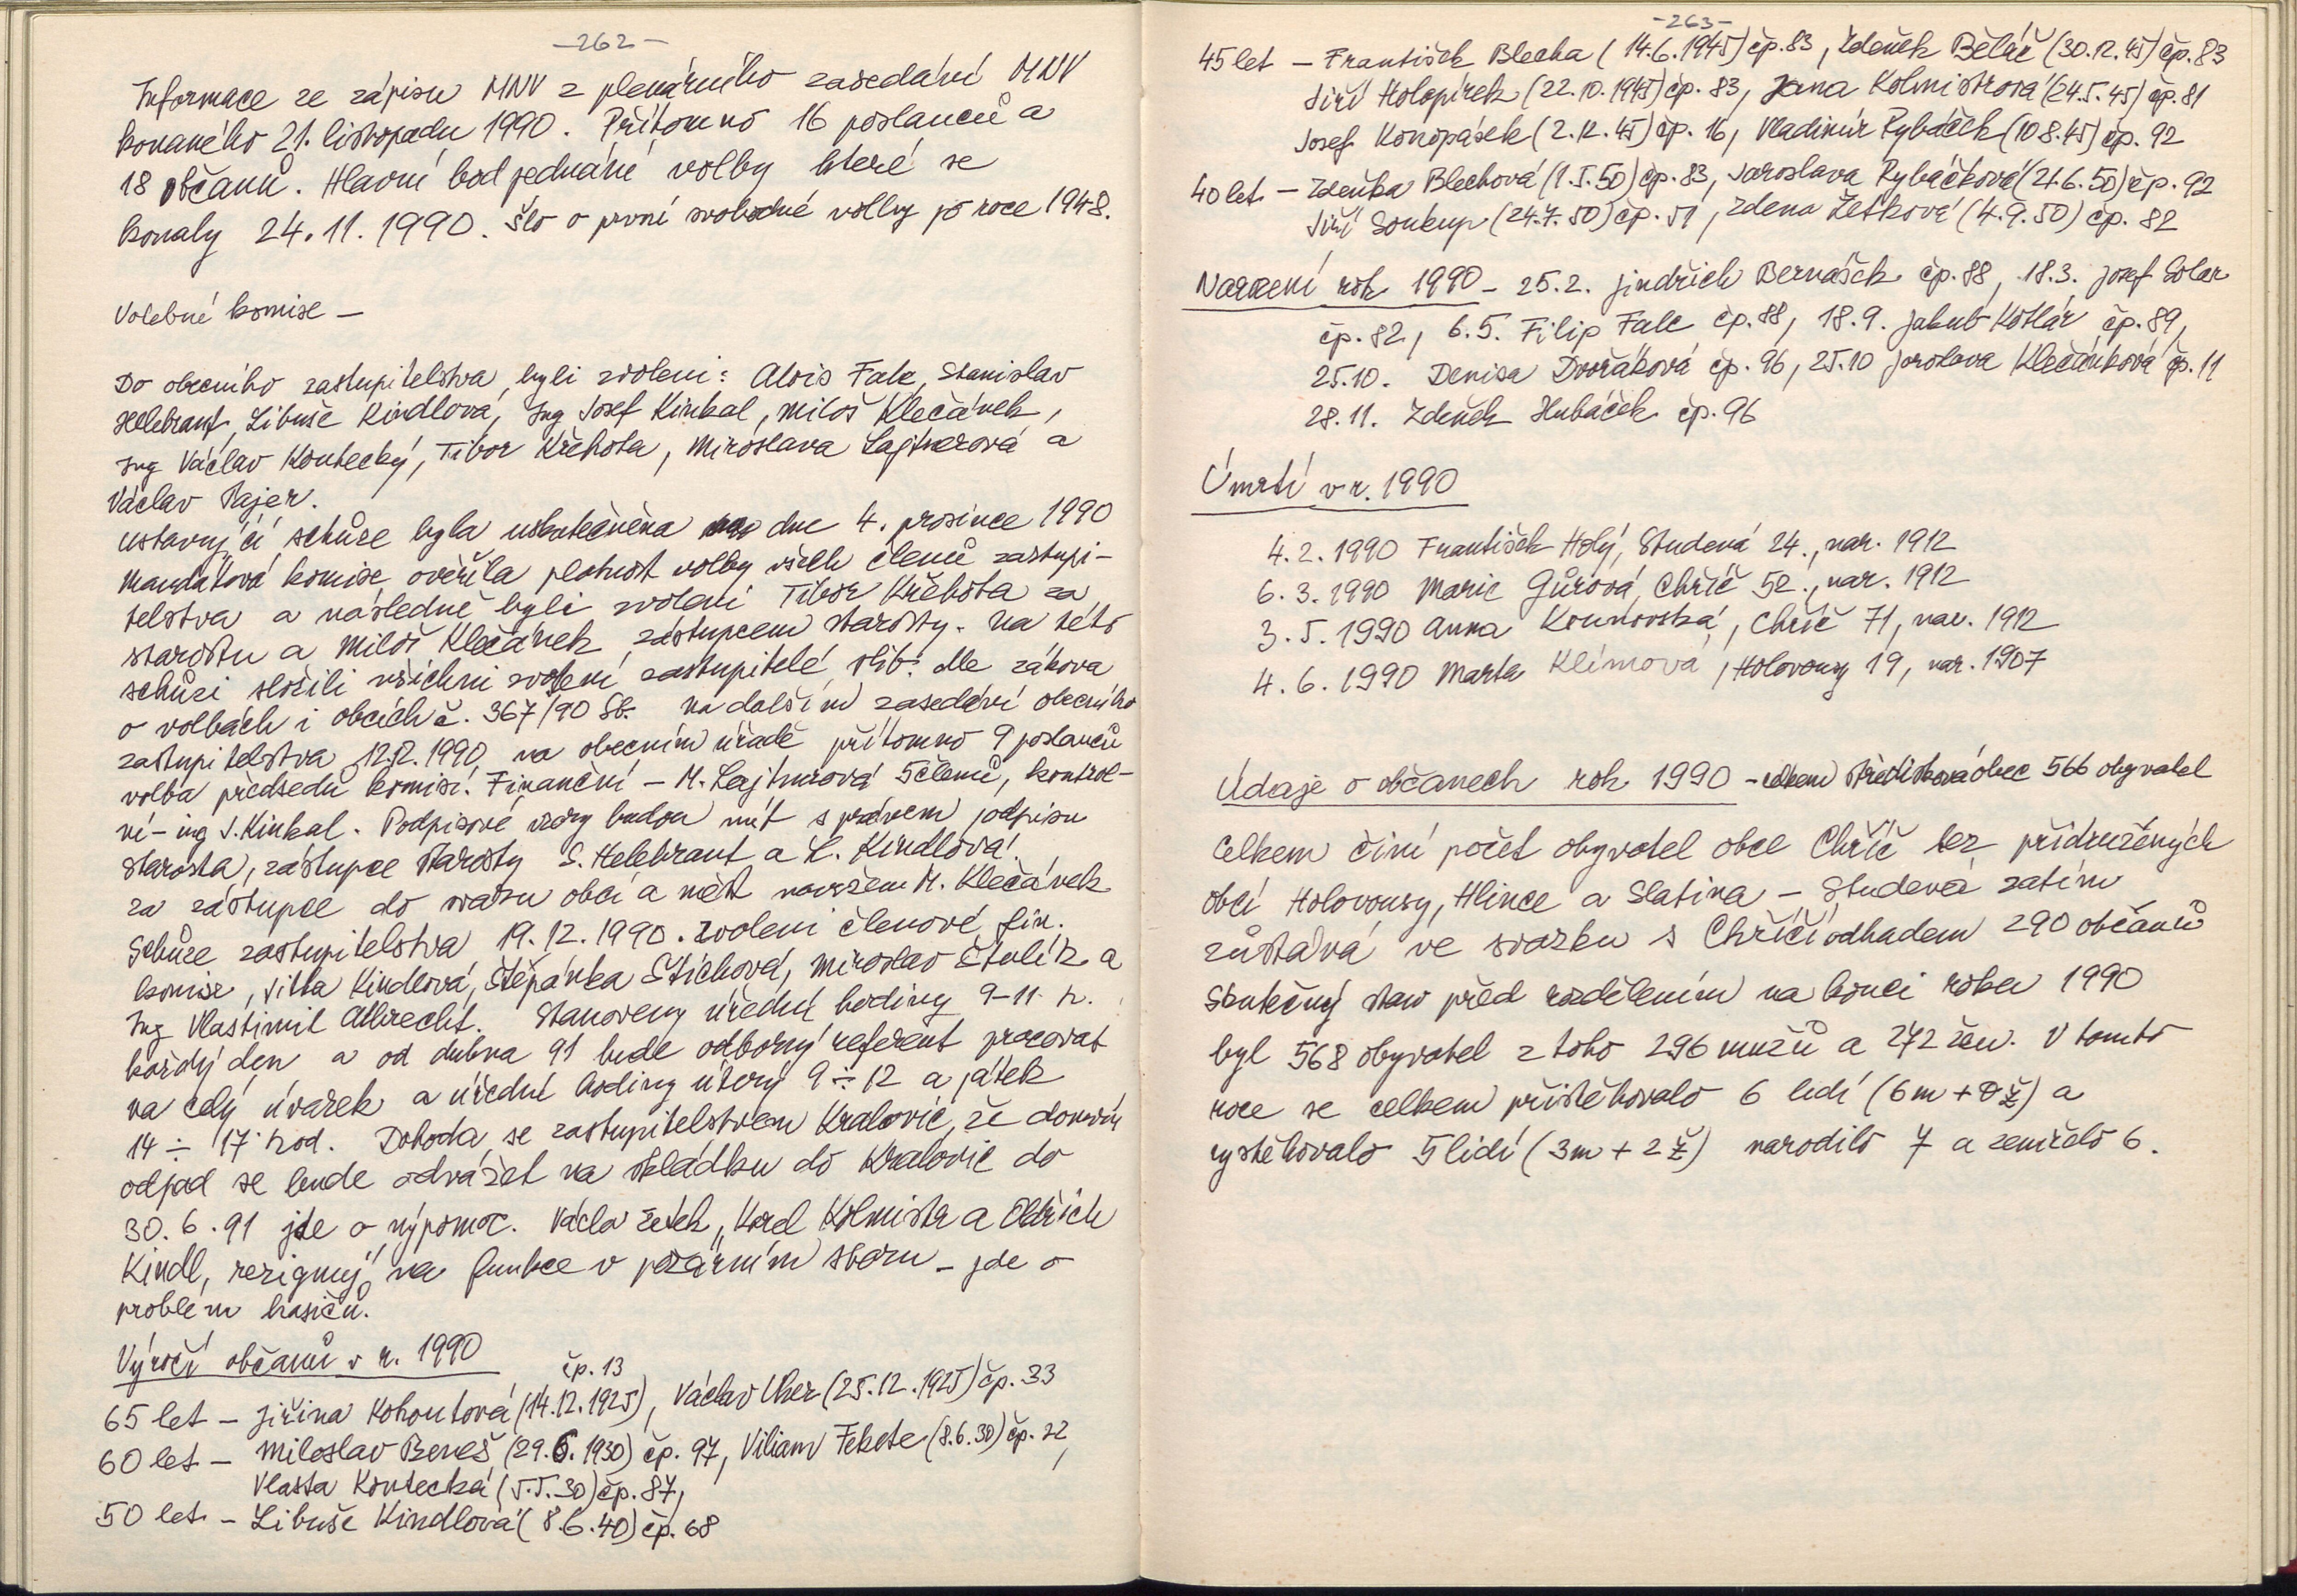 -262-
Informace ze zápisu MNV z plenárního zasedání MNV
konaného 21. listopadu 1990. Přítomno 16 poslanců a
18 občanů. Hlavní bod jednání volby které se
konaly 24.11.1990. šlo o první svobodné volby po roce 1948.
Volební komise –
Do obecního zastupitelstva byli zvoleni: Alois Falc, Stanislav
Helebrant, Libuše Kindlová, Ing Josef Kinkal, Miloš Klečánek,
Ing Václav Koutecký, Tibor Křehota, Miroslava Lajtnerová a
Václav Pajer.
Ustavující schůze byla uskutečněna dne 4. prosince 1990
Mandátová komise ověřila platnost volby všech členů zastupi-
telstva a následně byli zvoleni Tibor Křehota za
starostu a Miloš Klečánek zástupcem starosty. Na této
schůzi složili všichni zvolení zastupitelé slib. dle zákona
o volbách i obcích č. 367/90 Sb. na dalším zasedání obecního
zastupitelstva 12.12.1990 na obecním úřadě přítomno 9 poslanců
volba předsedů komisí. Finanční – M. Lajtnerová 5 členů, kontrol-
ní – ing J. Kinkal. Podpisové vzory budou mít s právem podpisu
starosta, zástupce starosty S. Helebrant a L. Kindlová.
za zástupce do svazu obcí a měst navržen M. Klečánek
Schůze zastupitelstva 19.12.1990. Zvoleni členové fin.
komise, Jitka Kindlová, Štěpánka Štichová, Miroslav Štulík a
Ing Vlastimil Albrecht. Stanoveny úřední hodiny 9-11 h.
každý den a od dubna 91 bude odborný referent pracovat
na celý úvazek a úřední hodiny úterý 9÷12 a pátek
14 ÷ 17 hod. Dohoda se zastupitelstvem Kralovic, že domovní
odpad se bude odvážet na skládku do Kralovic do
30.6.91 jde o výpomoc. Václav Žežek, Karel Kolmistr a Oldřich
Kindl, rezignují na funkce v požárním sboru – jde o
problém hasičů.
Výročí občanů v r. 1990
čp. 13
65 let – Jiřina Kohoutová (14.12.1925), Václav Uher (25.12.1925) čp. 33
60 let – Miloslav Beneš (29.6.1930) čp. 97, Viliam Fekete (8.6.30) čp. 22,
Vlasta Koutecká (5.5.30) čp. 87,
50 let – Libuše Kindlová (8.6.40) čp. 68
-263-
45 let – František Blecha (14.6.1945) čp. 83, Zdeněk Běláč (30.12.45) čp. 83
Jiří Holopírek (22.10.1945) čp. 83, Jana Kolmistrová (24.5.45) čp. 81
Josef Konopásek (2.12.45) čp. 16, Vladimír Rybáček (10.8.45) čp. 92
40 let – Zdeňka Blechová (1.5.50) čp. 83, Jaroslava Rybáčková (21.6.50) čp. 92
Jiří Soukup (24.7.50) čp. 51, Zdena (4.9.50) čp. 82
Narození rok 1990 – 25.2. Jindřich Bernášek čp. 88, 18.3. Josef Solar
čp. 82, 6.5. Filip Falc čp. 88, 18.9. Jakub Kotlár čp. 89,
25.10. Denisa Dvořáková čp. 96, 25.10 Jaroslava Klečánková čp. 11
28.11. Zdeněk Hubáček čp. 96
Úmrtí v r. 1990
4.2.1990 František Holý, Studená 24., nar. 1912
6.3.1990 Marie Gůrová, Chříč 52., nar. 1912
3.5.1990 Anna Kounovská, Chříč 71, nar. 1912
4.6.1990 Marta Klímová, Holovousy 19, nar. 1907
Údaje o občanech rok 1990 – celkem středisková obec 566 obyvatel
Celkem činí počet obyvatel obce Chříč bez přidružených
obcí Holovousy, Hlince a Slatina – Studená zatím
zůstává ve svazku s Chříčí odhadem 290 občanů
Skutečný stav před rozdělením na konci roku 1990
byl 568 obyvatel z toho 296 mužů a 272 žen. V tomto
roce se celkem přistěhovalo 6 lidí (6m + 0ž) a
vystěhovalo 5 lidí (3m + 2ž) narodilo 7 a zemřelo 6.